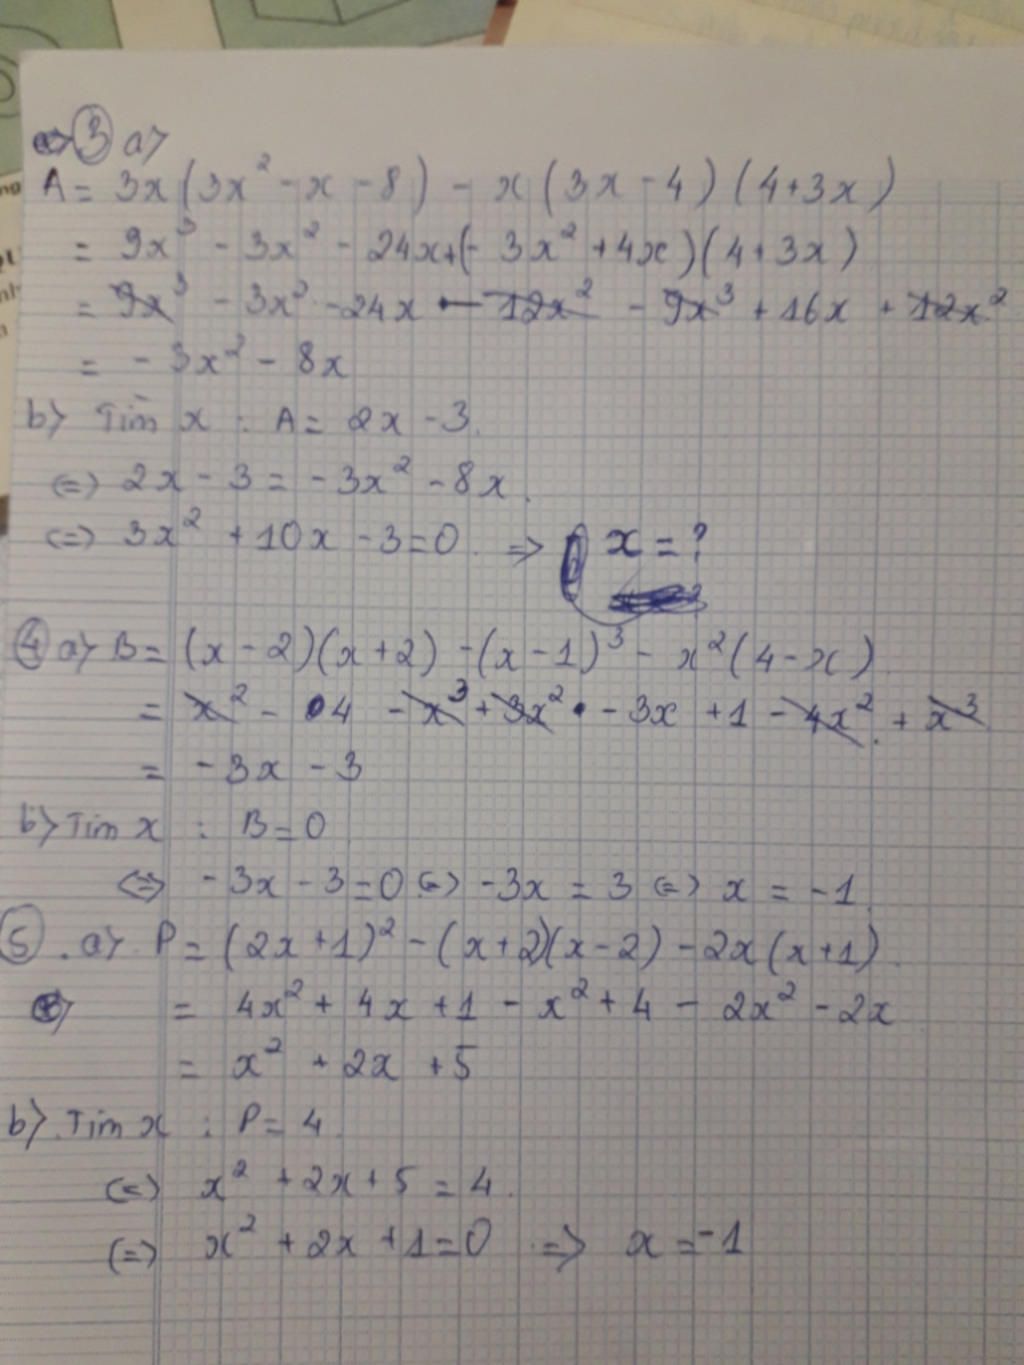 ③ a)
A = 3x(3x² - x - 8) - x(3x - 4)(4+3x)
= 9x³ - 3x² - 24x + (- 3x² + 4x)(4+3x)
= 9x³ - 3x² - 24x - 12x² - 9x³ + 16x + 12x²
= - 3x² - 8x
b) Tìm x : A = 2x - 3.
(=) 2x - 3 = - 3x² - 8x.
(=) 3x² + 10x - 3 = 0. => x = ?
④ a) B = (x - 2)(x + 2) - (x - 1)³ - x²(4 - x)
= x² - 4 - x³ + 3x² - 3x + 1 - 4x² + x³
= - 3x - 3
b) Tìm x : B = 0
<=> - 3x - 3 = 0 (=) - 3x = 3 (=) x = - 1.
⑤ . a) P = (2x + 1)² - (x + 2)(x - 2) - 2x(x + 1).
= 4x² + 4x + 1 - x² + 4 - 2x² - 2x
= x² + 2x + 5
b) Tìm x : P = 4
(=) x² + 2x + 5 = 4.
(=) x² + 2x + 1 = 0 => x = - 1